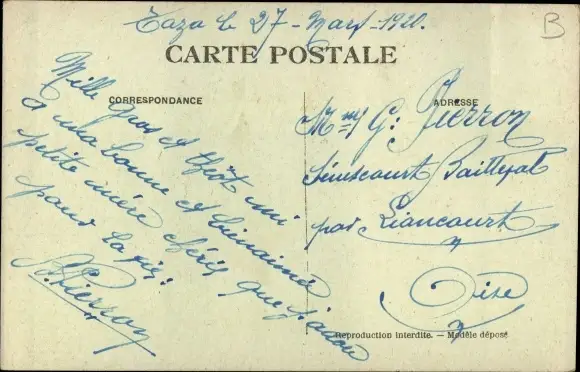 Taza le 27 - Mars - 1920.
B
CARTE POSTALE
CORRESPONDANCE
Mille gros et
a ma bonne et bienaimée
petite mère chérie que j'adore
pour la vie.
Pierron
ADRESSE
Mme G. Pierron
Sénécourt Bailleval
par Liancourt
Oise
Reproduction interdite. — Modèle déposé